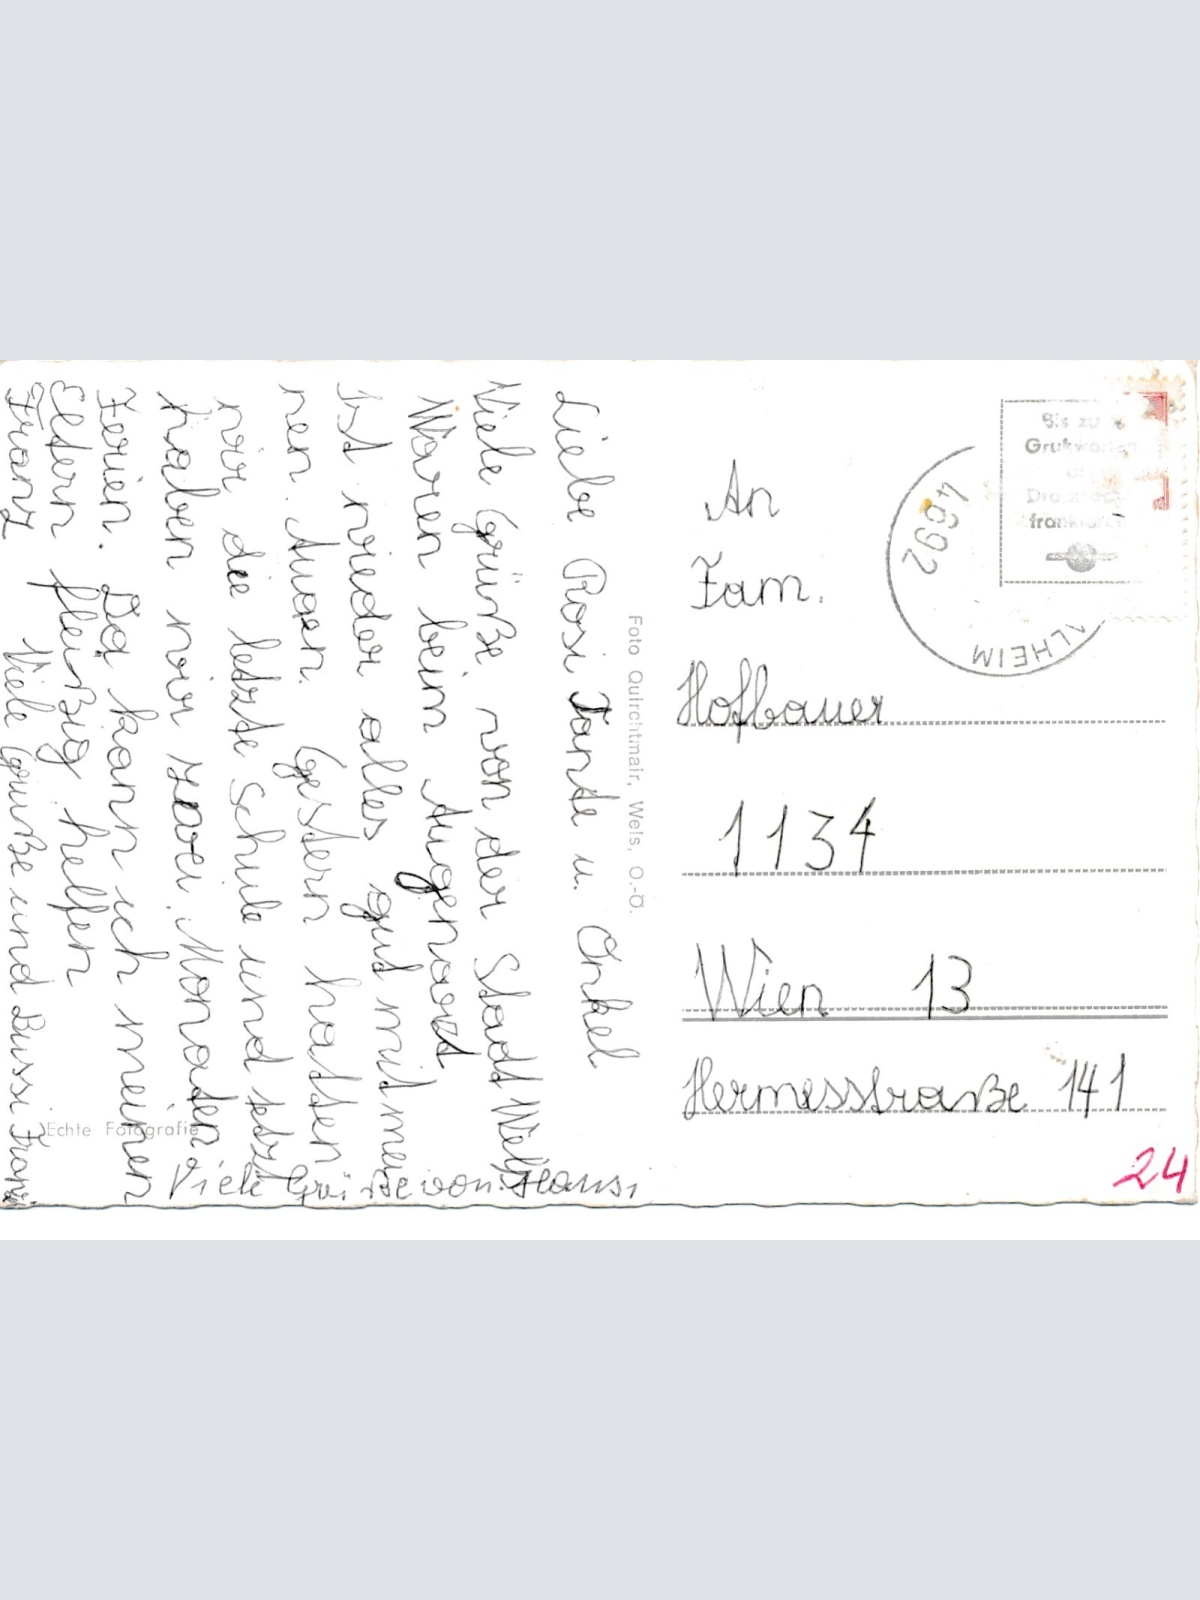 Liebe Rosi Tante u. Onkel
Viele Grüße von der Stadt Wels
Waren beim Augenarzt
Ist wieder alles gut mit mei
nen Augen. Gestern hatten
wir die letzte Schule und jetzt
haben wir zwei Monaten
Ferien. Da kann ich meinen
Eltern fleißig helfen
Franz Viele Grüße und Bussi Franzi
Viele Grüße von Hansi
Echte Fotografie
Foto Quirchtmair, Wels, O.-Ö.
Bis zu
Grußworten
als
Drucksache
frankieren
4692
ALHEIM
An
Fam.
Hofbauer
1134
Wien 13
Hermesstraße 141
24